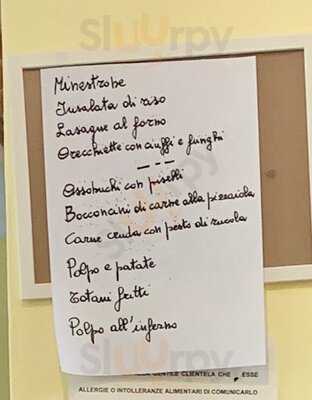 Sluurpy
Minestrone
Insalata di riso
Lasagne al forno
Orecchiette con ciuffi e funghi
Ossobuchi con piselli
Bocconcini di carne alla pizzaiola
Carne cruda con pesto di rucola
Polpo e patate
Totani fritti
Polpo all'inferno
Sluurpy
GENTILE CLIENTELA CHE ESSE
ALLERGIE O INTOLLERANZE ALIMENTARI DI COMUNICARLO